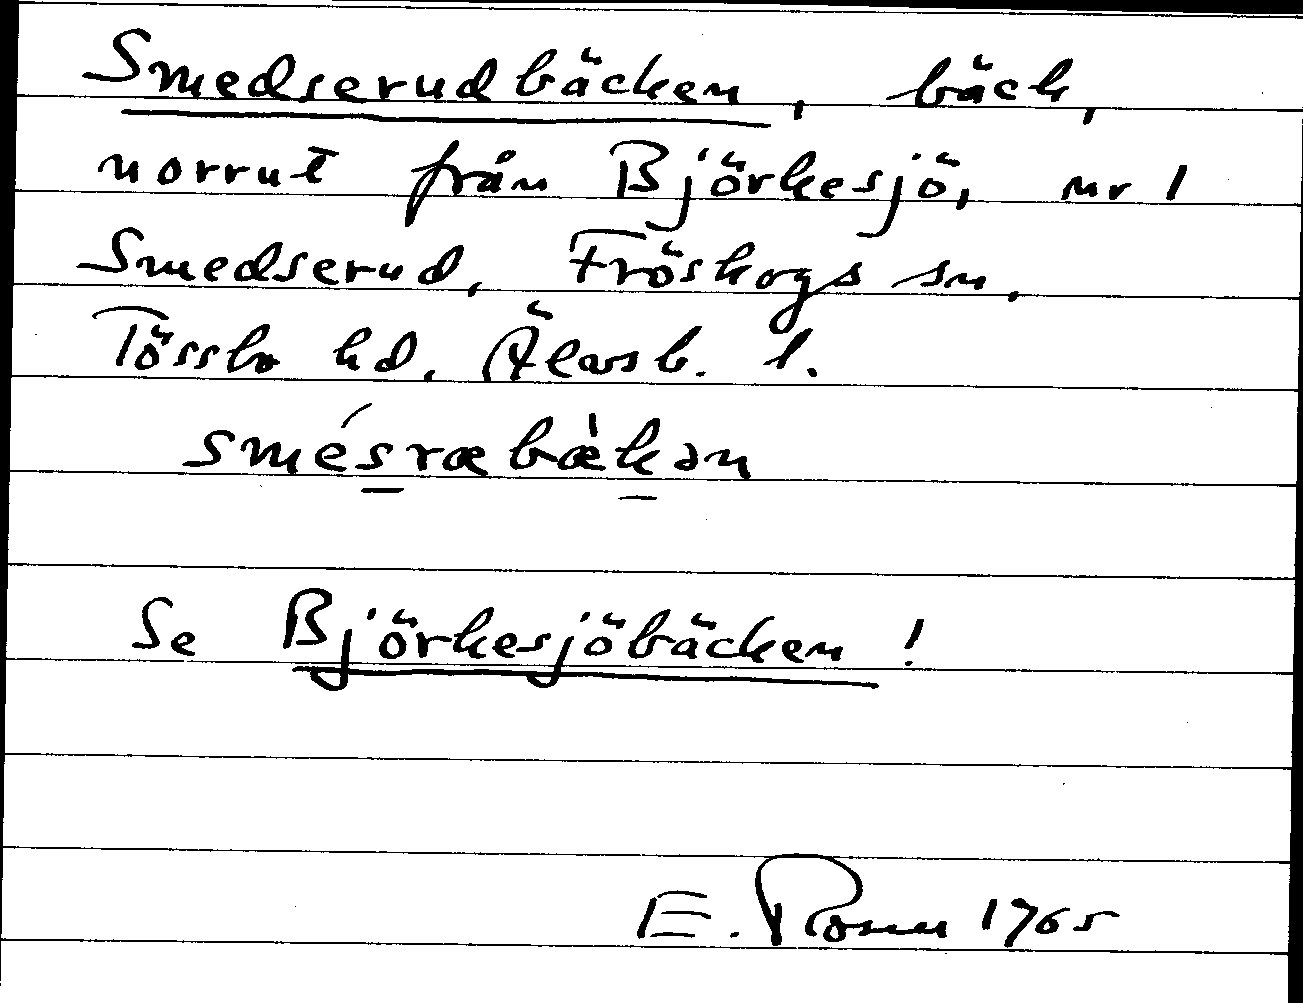 Smedserudbäcken, bäck,
norrut från Björkesjö, nr 1
Smedserud, Fröskogs sn,
Tössbo hd. Älvsb. l.
smésræbæ̀kən
Se Björkesjöbäcken!
E. 1965